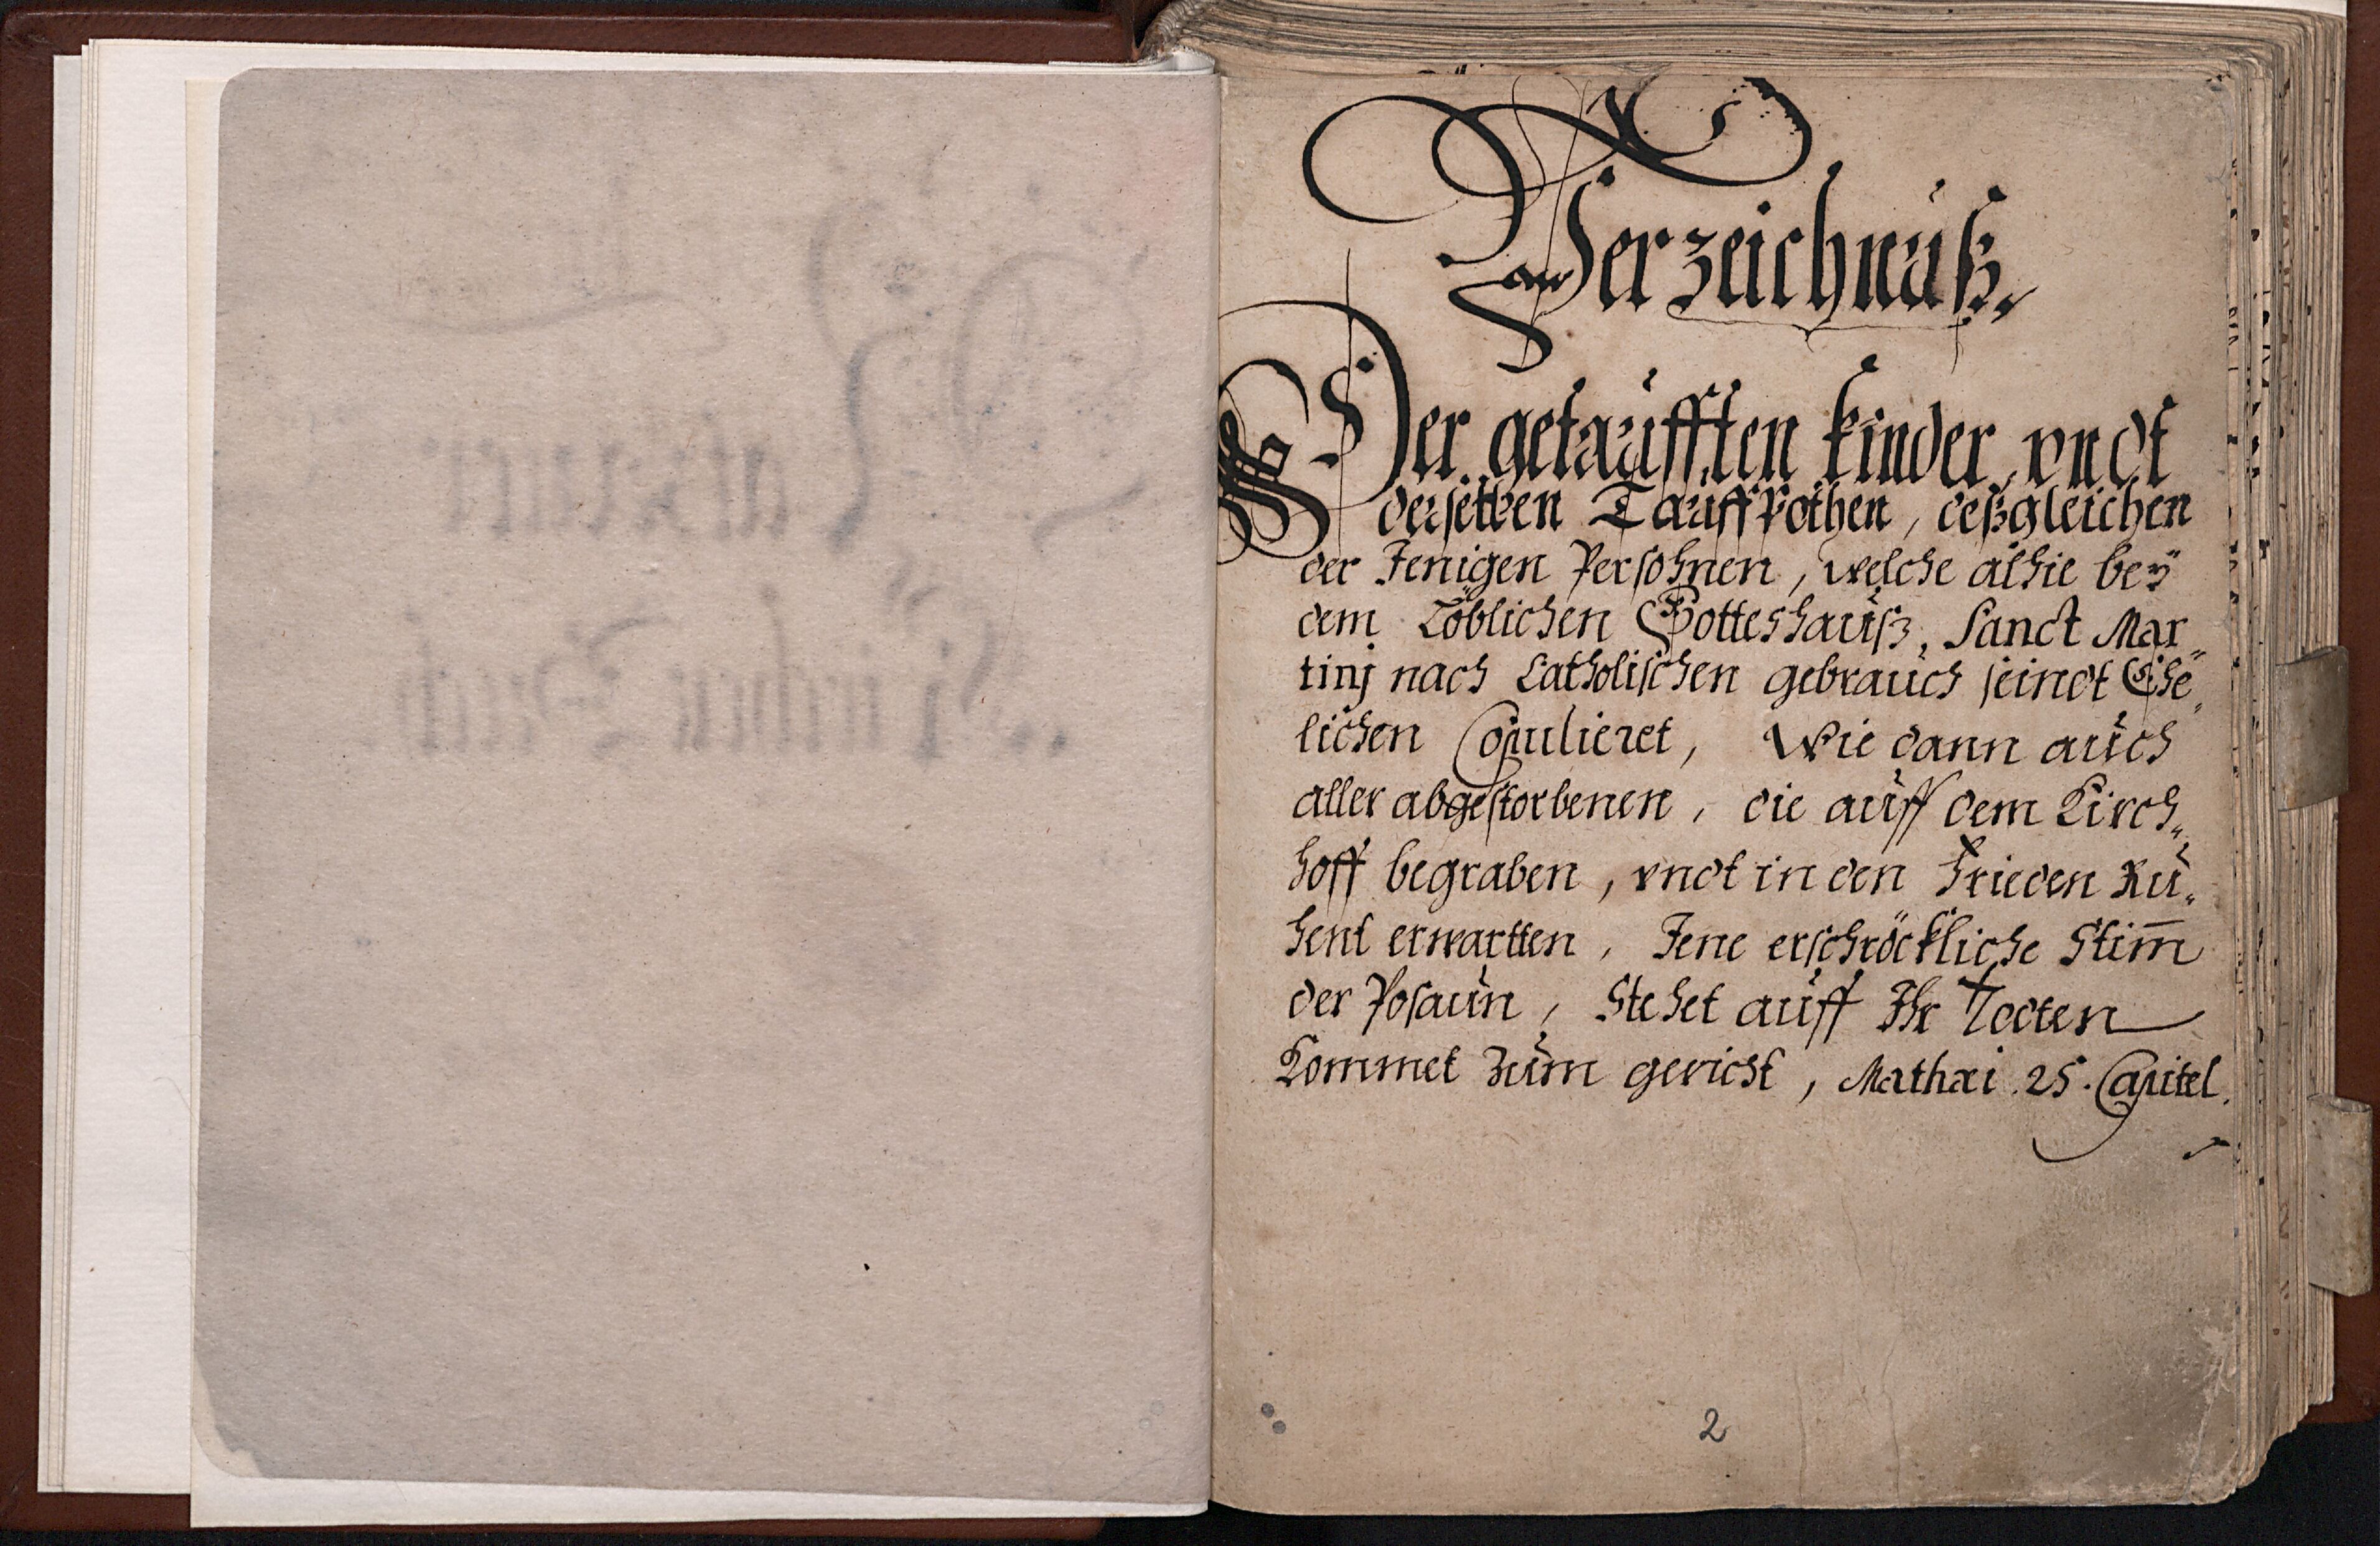 Verzeichnüß
Der getaüfften kinder vndt
derselben Taüffpothen, deßgleichen
der Jenigen Persohnen, welche alhie beÿ
dem Löblichen Gotteshaüß, Sanct Mar„
tinj nach Catholischen gebraüch seindt Ehe„
lichen Copulieret, Wie dann aüch
aller abgestorbenen, die aüff dem Kirch„
hoff begraben, vndt in den Frieden Rü„
hent erwartten, Jene erschröckliche Stim̄
der Posaün, Stehet aüff Ihr Todten
Kommet Züm gericht, Mathæi 25. Capitel.
2